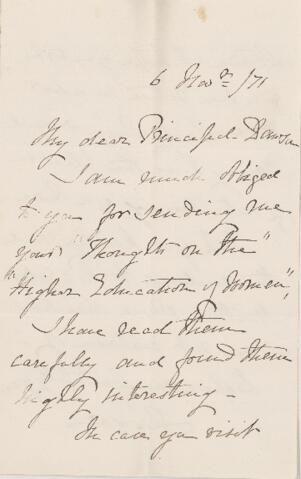 6 Novr /71
My dear Principal Dawson
I am much obliged
to you for sending me
your "Thoughts on the"
"Higher Education of Women",
I have read them
carefully and found them
highly interesting -
In case you visit